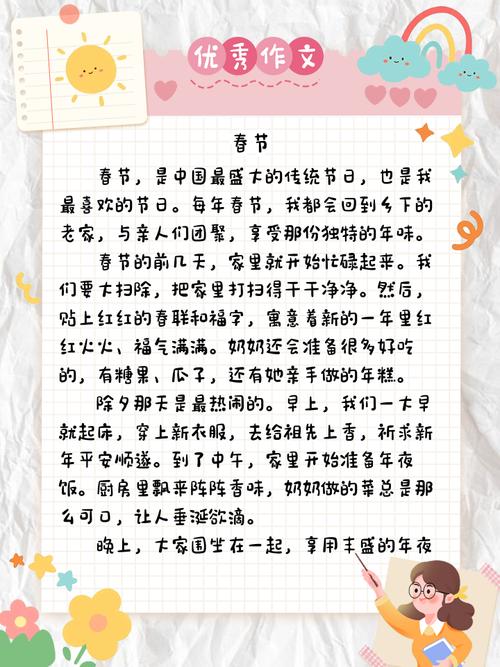 优秀作文
春节
春节，是中国最盛大的传统节日，也是我
最喜欢的节日。每年春节，我都会回到乡下的
老家，与亲人们团聚，享受那份独特的年味。
春节的前几天，家里就开始忙碌起来。我
们要大扫除，把家里打扫得干干净净。然后，
贴上红红的春联和福字，寓意着新的一年里红
红火火、福气满满。奶奶还会准备很多好吃
的，有糖果、瓜子，还有她亲手做的年糕。
除夕那天是最热闹的。早上，我们一大早
就起床，穿上新衣服，去给祖先上香，祈求新
年平安顺遂。到了中午，家里开始准备年夜
饭。厨房里飘来阵阵香味，奶奶做的菜总是那
么可口，让人垂涎欲滴。
晚上，大家围坐在一起，享用丰盛的年夜